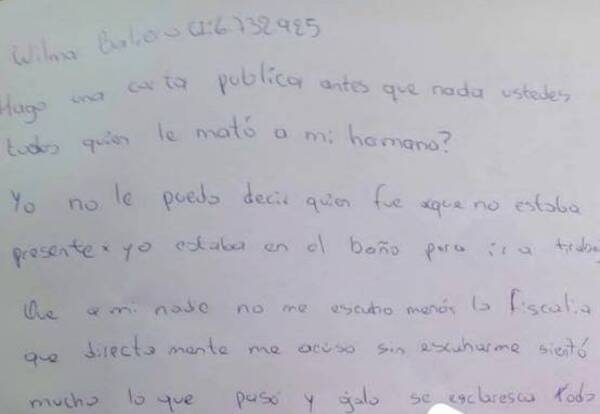 Wilma C.I 6.732.925
Hago una carta publica antes que nada ustedes
todos quien le mató a mi hemano?
Yo no le puedo decir quien fue xque no estaba
presente x yo estaba en el baño para ir a traba
Que a mi nade no me escuho menos la fiscalia
que directa mente me acuso sin escuharme sientó
mucho lo que pasó y ójalo se esclaresca todo